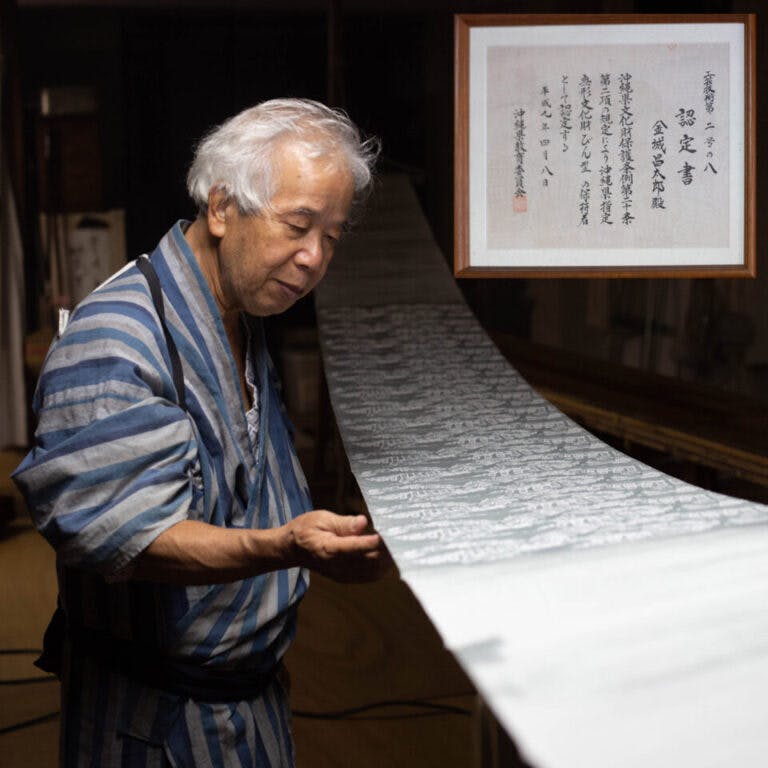 工芸技術第二号の八
認定書
金城昌太郎殿
沖縄県文化財保護条例第二十条
第二項の規定により沖縄県指定
無形文化財「びん型」の保持者
として認定する
平成九年四月八日
沖縄県教育委員会